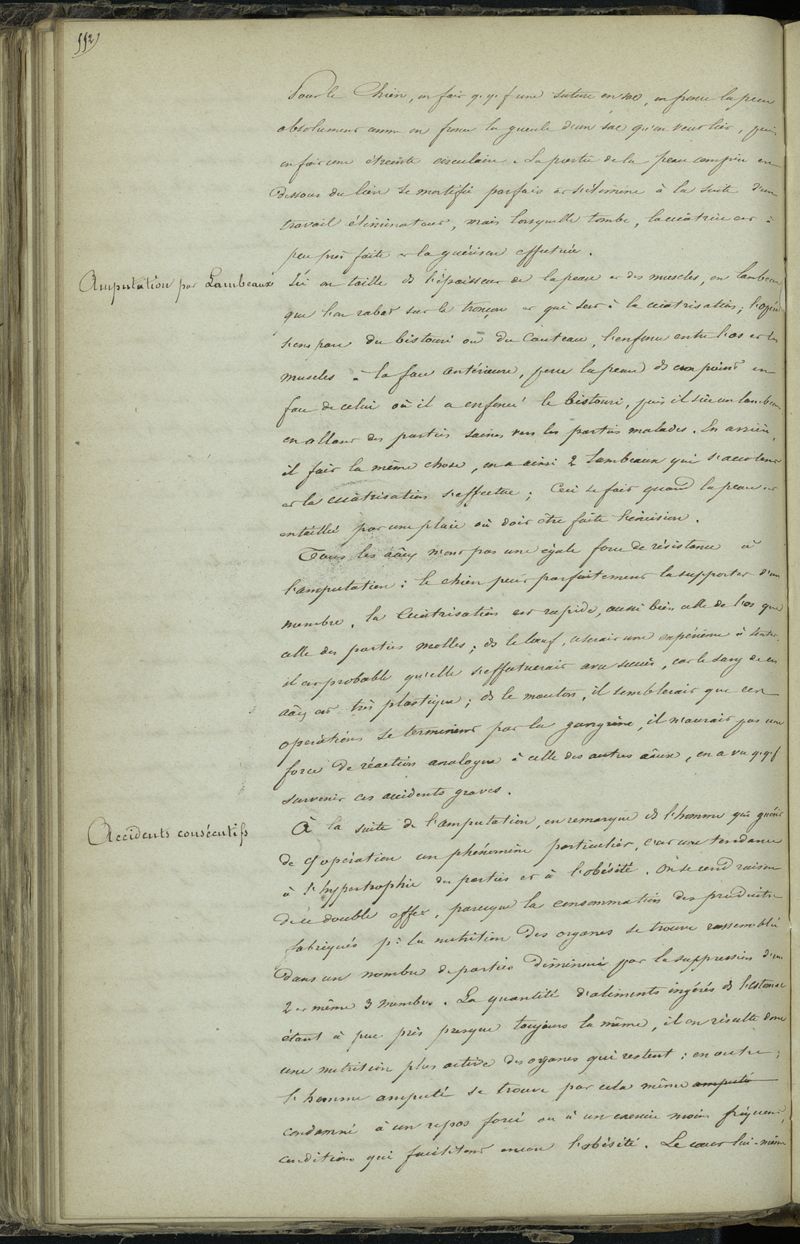 112)
Pour le Chien, on fait q.q.f. une suture en sac, on fronce la peau
absolument comme on fronce la gueule d'un sac qu'on veut lier, puis
on fait une étreinte circulaire. La partie de la peau comprise en
dessous du lien se mortifie parfois et s'élimine à la suite d'un
travail éliminateur, mais lorsqu'elle tombe, la cicatrice est à
peu près faite et la guérison effectuée.
Amputation par Lambeaux
Ici on taille ds l'épaisseur de la peau et des muscles, un lambeau
que l'on rabat sur le tronçon et qui sert à la cicatrisation; l'opér
s'empare du bistouri ou du Couteau, l'enfonce entre l'os et les
muscles à la face antérieure, perce la peau ds un point en
face de celui où il a enfoncé le bistouri, puis il scie un lambeau
en allant des parties saines vers les parties malades. En arrière,
il fait la même chose, on a ainsi 2 lambeaux qui s'accolent
et la cicatrisation s'effectue; Ceci se fait quand la peau est
entaillée par une plaie où doit être faite l'incision.
Tous les aaux n'ont pas une égale force de résistance à
l'amputation: le chien peut parfaitement la supporter d'un
membre, la Cicatrisation est rapide, aussi bien celle de l'os que
celle des parties molles; ds le bœuf, ce serait une expérience à tenter,
il est probable qu'elle s'effectuerait avec succès, car le sang de ces
aaux est très plastique; ds le mouton, il semblerait que ces
opérations se terminent par la gangrène, il n'aurait pas une
force de réaction analogue à celle des autres aaux, on a vu q.q.f.
survenir ces accidents graves.
Accidents consécutifs
À la suite de l'amputation, on remarque ds l'homme qui guérit
de cette opération un phénomène particulier, c'est une tendance
à l'hypertrophie des parties et à l'obésité. On se rend raison
de ce double effet, parceque la consommation des produits
fabriqués pr la nutrition des organes se trouve rassemblée
dans un nombre de parties diminué par la suppression d'un
2 et même 3 membres. La quantité d'aliments ingérés ds l'estomac
étant à peu près presque toujours la même, il en résulte donc
une nutrition plus active des organes qui restent; en outre,
l'homme amputé se trouve par cela même amputé
condamné à un repos forcé ou à un exercice moins fréquent,
conditions qui facilitent encore l'obésité. Le cœur lui-même